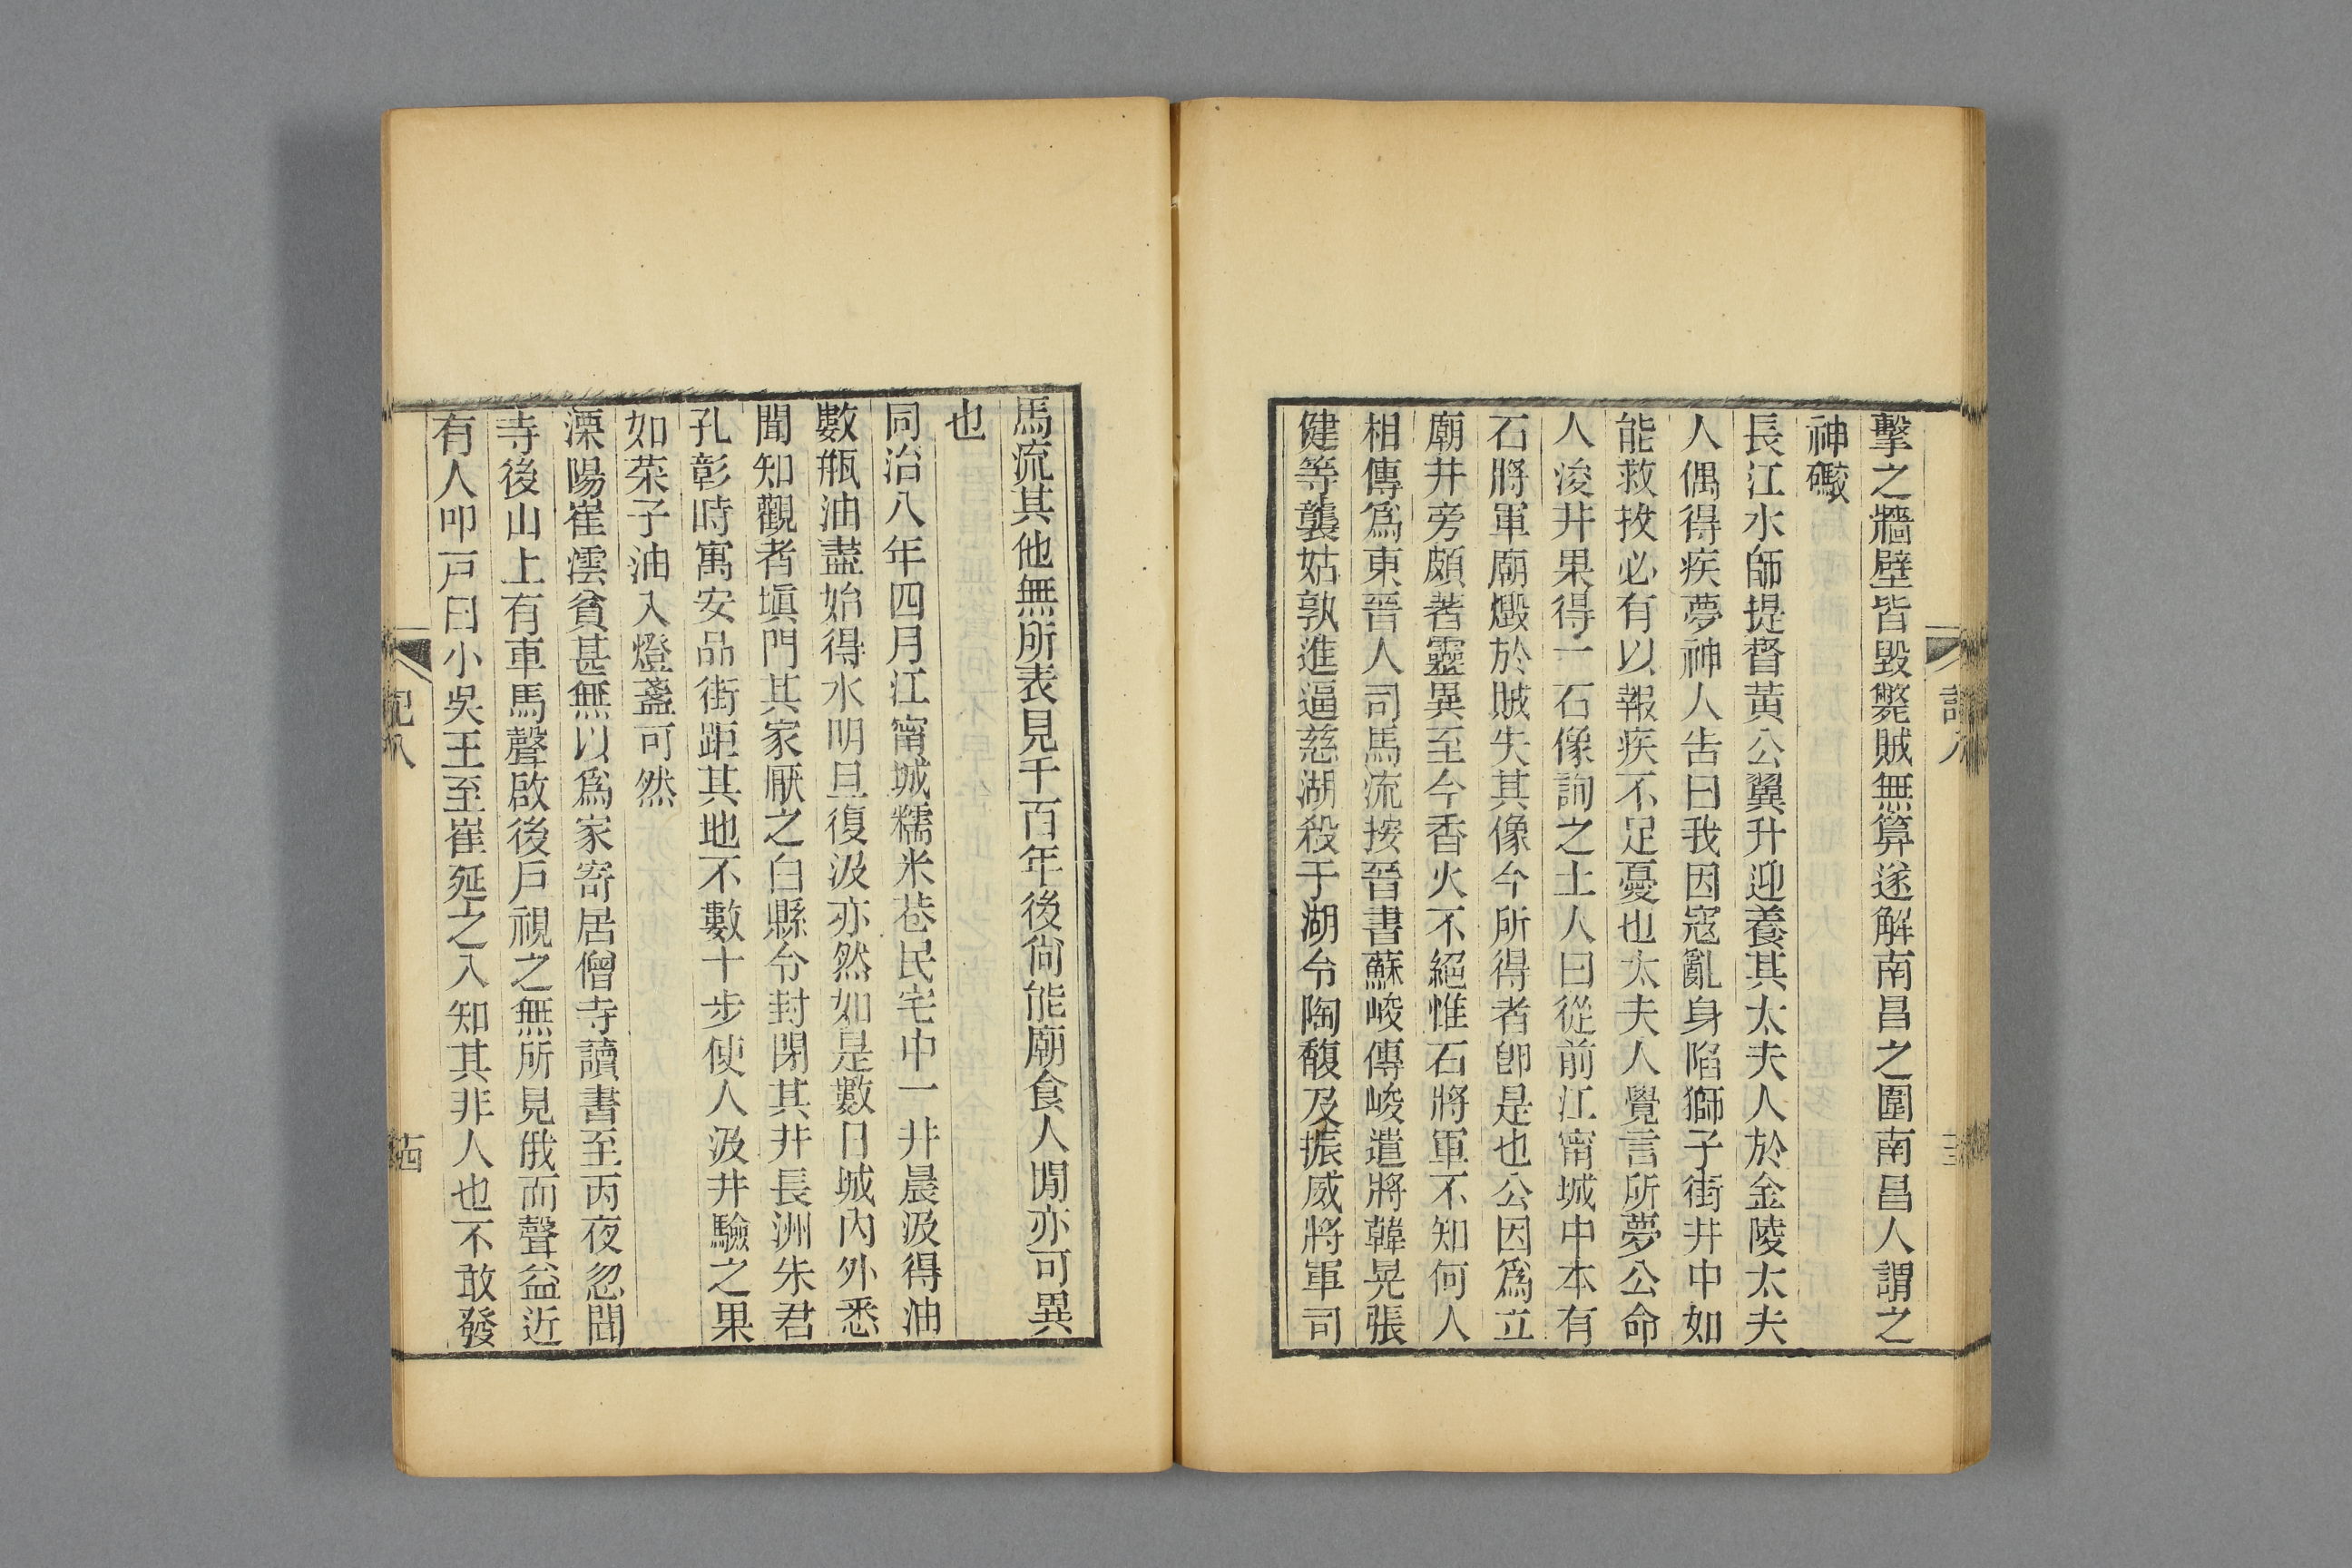 擊之牆壁皆毀斃賊無算遂解南昌之圍南昌人謂之
神礮
長江水師提督黃公翼升迎養其太夫人於金陵太夫
人偶得疾夢神人告曰我因寇亂身陷獅子街井中如
能救拔必有以報疾不足憂也太夫人覺言所夢公命
人浚井果得一石像詢之土人曰從前江甯城中本有
石將軍廟燬於賊失其像今所得者卽是也公因爲立
廟井旁頗著靈異至今香火不絕惟石將軍不知何人
相傳爲東晉人司馬流按晉書蘇峻傳峻遣將韓晃張
健等襲姑孰進逼慈湖殺于湖令陶馥及振威將軍司
馬流其他無所表見千百年後尙能廟食人閒亦可異
也
同治八年四月江甯城糯米巷民宅中一井晨汲得油
數甁油盡始得水明旦復汲亦然如是數日城內外悉
聞知觀者塡門其家厭之白縣令封閉其井長洲朱君
孔彰時寓安品街距其地不數十步使人汲井驗之果
如菜子油入燈盞可然
溧陽崔澐貧甚無以爲家寄居僧寺讀書至丙夜忽聞
寺後山上有車馬聲啟後戶視之無所見俄而聲益近
有人叩戶曰小吳王至崔延之入知其非人也不敢發
記八
十四